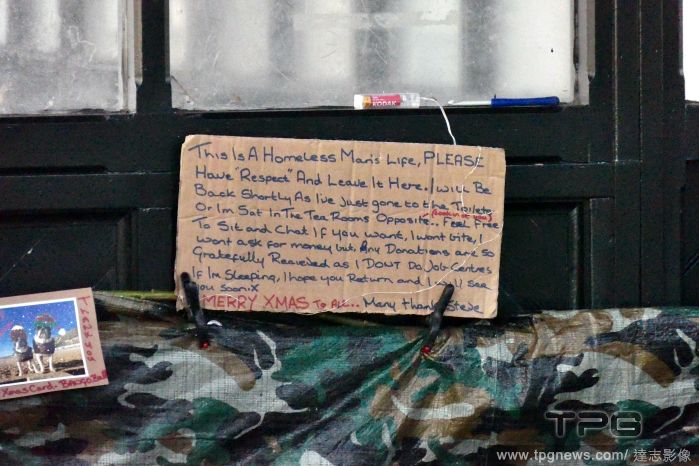 KODAK
This Is A Homeless Man's Life, PLEASE
Have "Respect" And Leave It Here. I will Be
Back Shortly As I've Just gone to the Toilets
Or I'm Sat In The Tea Rooms Opposite.. Feel Free
To Sit and Chat If you want, I wont bite, I
wont ask for money but, Any Donations are so
Gratefully Recieved as I DON'T Do Job Centres
If I'm Sleeping, I hope you Return and I will see
you soon.x
MERRY XMAS To ALL.. Many thanks Steve
Thank you
Xmas Card.
TPG
www.tpgnews.com/ 達志影像